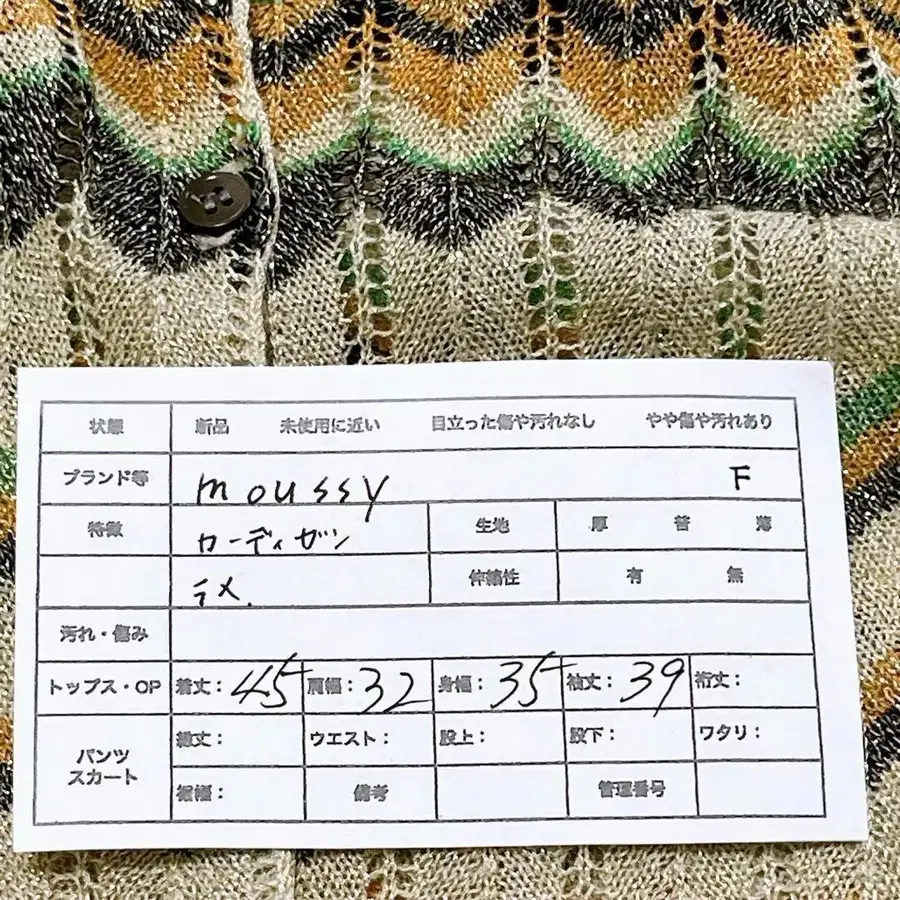 状態 新品 未使用に近い 目立った傷や汚れなし やや傷や汚れあり
ブランド等 moussy F
特徴 カーディガン 生地 厚 普 薄
ラメ. 伸縮性 有 無
汚れ・傷み
トップス・OP 着丈：45 肩幅：32 身幅：35 袖丈：39 裄丈：
パンツ スカート 総丈： ウエスト： 股上： 股下： ワタリ：
裾幅： 備考 管理番号